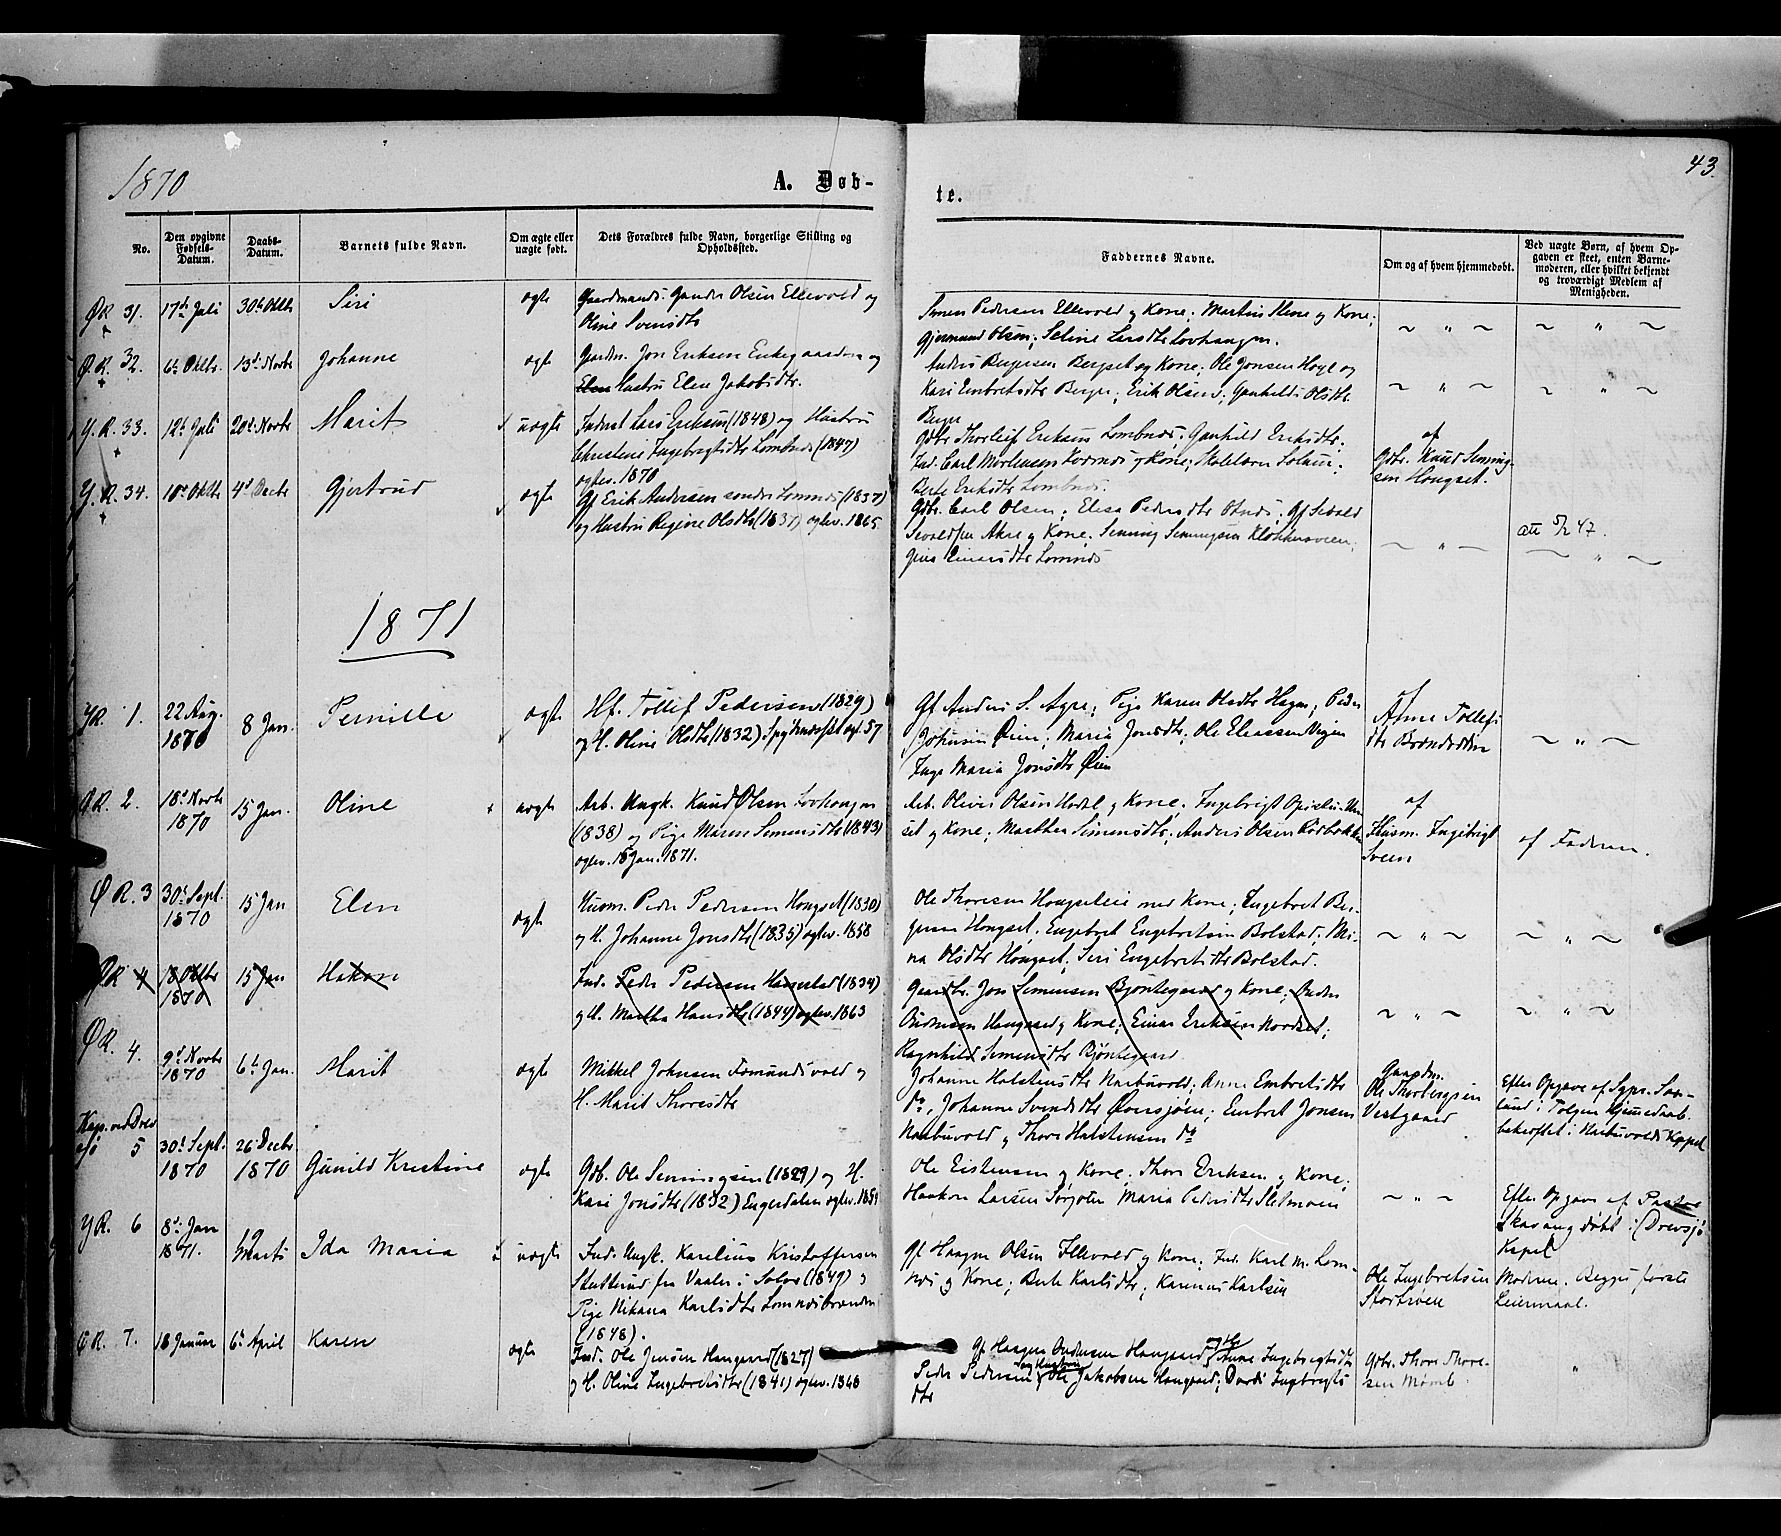 1870
A. Døb-
te.
43.
No.
Den opgivne Fødsels-Datum.
Daabs-Datum.
Barnets fulde Navn.
Om ægte eller uægte født.
Dets Forældres fulde Navn, borgerlige Stilling og Opholdssted.
Faddernes Navne.
Om og af hvem hjemmedøbt.
Ved uægte Børn, af hvem Opgaven er skeet, enten Barnemoderen, eller hvilket bekjendt og troværdigt Medlem af Menigheden.
ØR 31. 17de Juli 30te Oktbr Siri ægte Gaardmand Gunder Olsen Ellevold og
Oline Svensdtr
Simen Pedersen Ellevold og Kone; Martin og Kone;
Gjermund Olsen; Seline Larsdtr Lovhaugen.
~ " ~ ~ " ~
Ø.R. 32. 6te Oktbr. 13de Novbr Johanne ægte Gaardm. Jon Eriksen og
Hustru Elen Jakobsdtr.
Anders Bergersen Bergset og Kone; Ole Jonsen og
Kari Embretsdtr Berger; Erik Olsen; Gunhild Olsdtr
Berger
~ " ~ ~ " ~
Y.R. 33. 12te Juli 20de Novbr Marit uægte Inderst Lars Eriksen (1848) og Hustru
Christine Ingebrigtsdtr Lomnes (1847)
ægtev. 1870
Gdbr. Thorleif Eriksen Lombnes; Gunhild Eriksdtr.
Ind. Carl Mortensen og Kone;
Berte Eriksdtr Lombnes.
af
Gdbr. Knud Semming-
sen Hougset.
Y.R. 34. 18de Oktbr 4de Decbr Gjertrud ægte Gf Erik Andersen søndre Lomnes (1837)
og Hustru Regine Olsdtr (1837) ægtev. 1865
Gdbr. Carl Olsen; Elisa Pedersdtr; Gf Sevald
Sevaldsen Akre og Kone; Semming Semmingsen Klokkerveien;
Einarsdtr Lomnes
~ " ~
att 5/2 47.
~ " ~
1871
YR. 1. 22 Aug. 1870 8 Jan. Pernille ægte Hf. Tollef Pedersen (1829)
og H. Oline Olsdtr (1832) ægt. 57
Gf Anders S. Agre; Pige Karen Olsdtr Hagen; Peder
Johnsen Øien; Maria Jonsdtr; Ole Eliassen
Inge Maria Jonsdtr Øien
af
Anne Tollefs
dtr
~ " ~
ØR. 2. 18de Novbr 1870 15 Jan. Oline uægte Arb. Ungk. Knud Olsen Lovhaugen
(1838) og Pige Maren Simensdtr (1843)
ægtev. 15 Jan. 1871.
Arb. Oliver Olsen og Kone; Ingebrigt
set og Kone; Marthe Simensdtr; Anders Olsen
af
Husm. Ingebrigt
Sveen
af Faderen.
ØR. 3 30te Sept. 1870 15 Jan Elen ægte Husm. Peder Pedersen Hougset (1830)
og H. Johanne Jonsdtr (1835) ægtev. 1858
Ole Thoresen med Kone; Ingebret Ber-
gersen Hougset; Engebret Engebretsen Bolstad; Mi-
na Olsdtr Hougset; Siri Engebretsdtr Bolstad.
~ " ~ ~ " ~
ØR 4 18 Oktbr 1870 15 Jan Hakon Ind. Peder Pedersen (1834)
og H. Martha Hansdtr (1844) ægtev. 1863
Gaardbr. Jon Simensen Bjøntegaard og Kone; Anders
Andersen Haugaard og Kone; Einar Eriksen Nordset;
Ragnhild Simensdtr Bjøntegaard
~ " ~ ~ " ~
ØR. 4. 9de Novbr 1870 6te Jan. Marit ægte Mikkel Johnsen Fæmundsvold og
H. Marit Thoresdtr
Johanne Halstensdtr Narbuvold; Anne Embretsdtr
do, Johanne Svendsdtr Øversjøen; Embret Jonsen
Narbuvold og Thore Halstensen do
Gaardm.
Ole Thorbergsen
Vestgaard
Efter Opgave af Sgpr. Saa-
lund i Tolgen
bekræftet i Narbuvolds Kapel
Kap. ved Drev-
sjø 5 30te Sept. 1870 26 Decbr 1870 Gunild Kristine ægte Gdb. Ole Semmingsen (1829) og H.
Kari Jonsdtr (1832) Engerdalen ægtev. 1851
Ole Eistensen og Kone; Thore Eriksen og Kone;
Haakon Larsen Maria Pedersdtr Sletmoen
~ " ~
Efter Opgave af Pastor
Skavang døbt i (Drevsjø
Kapel
YR. 6 8de Jan 1871. Marts Ida Maria uægte Ind. Ungk. Karelius Kristoffersen
fra Vaaler i Solør (1849) og
Pige Nikana Karlsdtr Lomnesbranden
(1848).
Gf Haagen Olsen Ellevold og Kone; Ind. Karl M. Lom-
nes og Kone; Berte Karlsdtr; Karenus Karlsen
Ole Ingebretsen
Storrøen
Moderen. Begges første
Leiermaal.
ØR. 7. 18 Januar 6te April Karen ægte Ind. Ole Jensen Haugaard (1827)
og H. Oline Ingebretsdtr (1841) ægtev. 1868
Gf Haagen Andersen Haugaard og H. Anne Ingebrigtsdtr
Peder Pedersen og Hustru, Ole Jakobsen Haugaard; Dordi Ingebrigts
dtr
Gdbr. Thore Thore-
sen Mømb
"